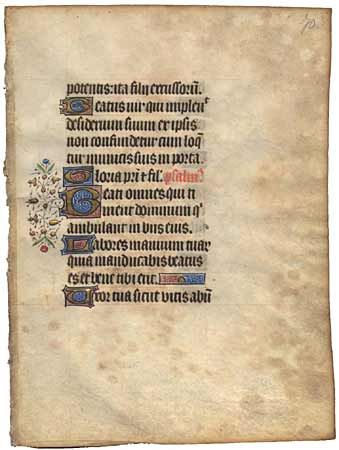 70
potentis: ita filij excussorũ.
Beatus vir qui implevit
desiderium suum ex ipsis
non confundetur cum loq̃
tur inimicis suis in porta
Gloria pr̃i ⁊ fil. psalm̃
Beati omnes qui ti
ment dominum q̃
ambulant in viis eius.
Labores manuum tuar
quia manducabis beatus
es et bene tibi erit.
Uxor tua sicut vitis abũ